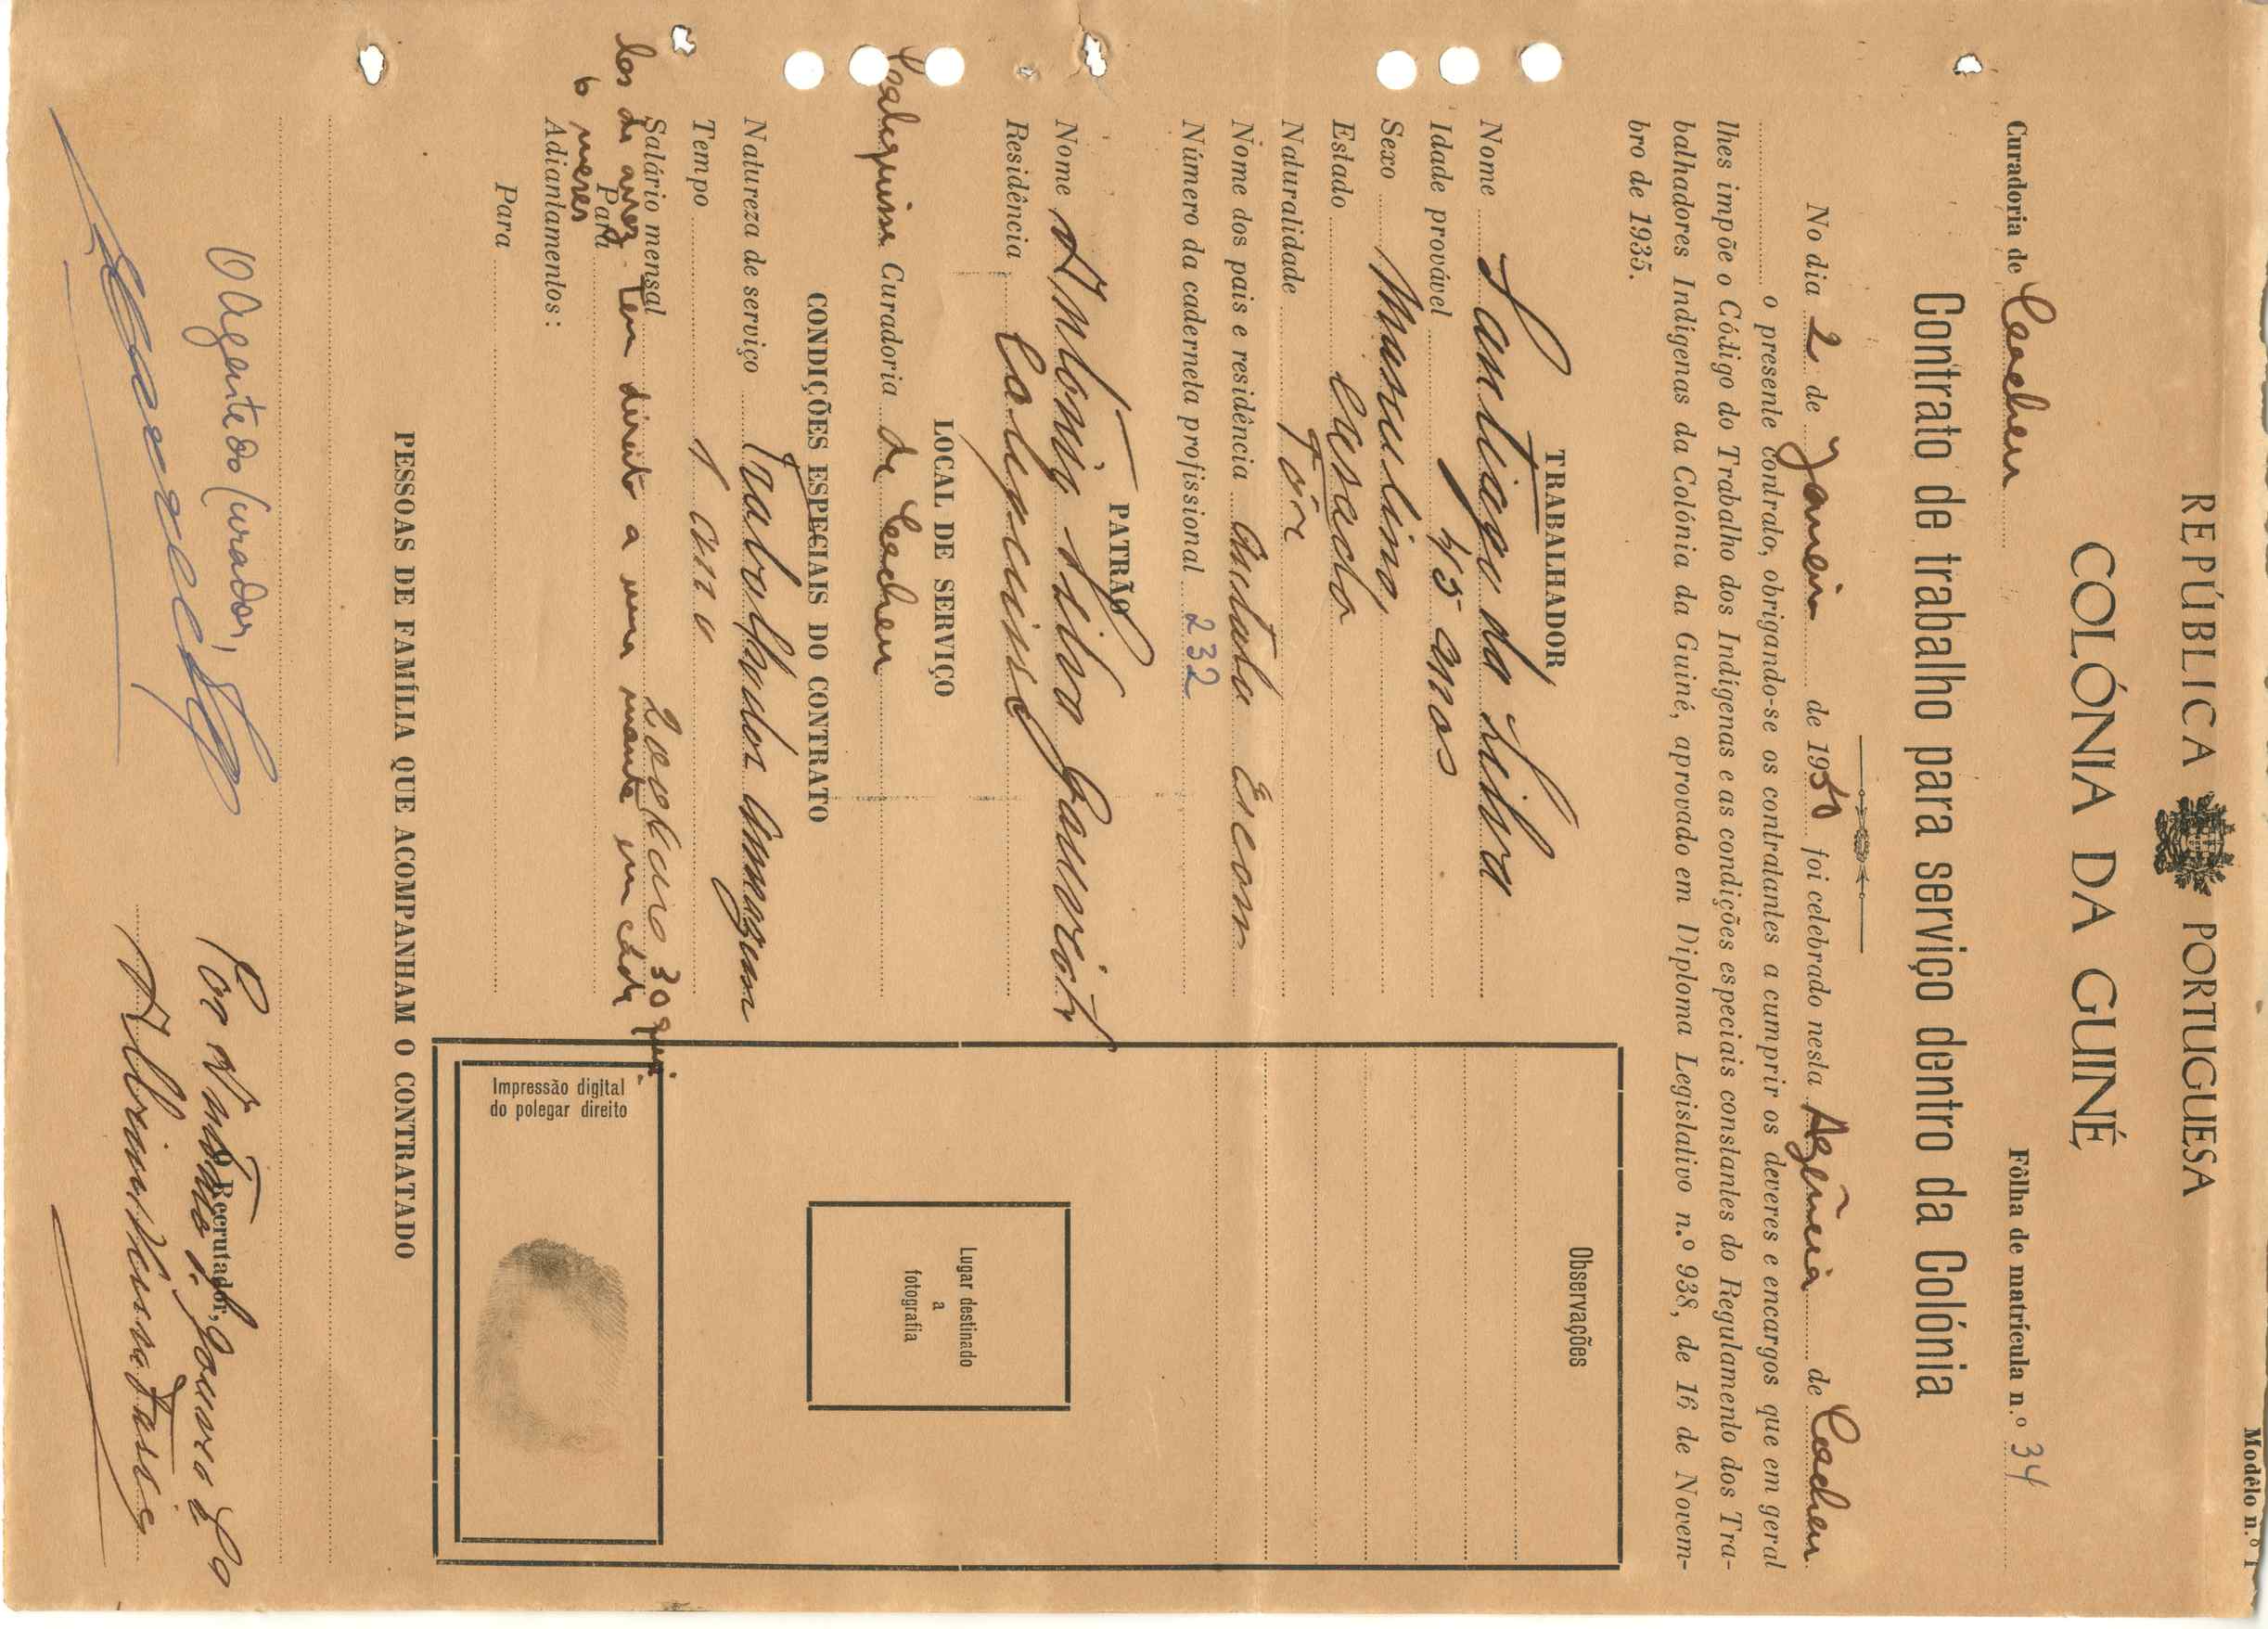 Modêlo n.º 1
REPÚBLICA PORTUGUESA
COLÓNIA DA GUINÉ
Curadoria de Cacheu Fôlha de matrícula n.º 34
Contrato de trabalho para serviço dentro da Colónia
No dia 2 de Janeiro de 1950 foi celebrado nesta Agência de Cacheu
o presente contrato, obrigando-se os contratantes a cumprir os deveres e encargos que em geral
lhes impõe o Código do Trabalho dos Indígenas e as condições especiais constantes do Regulamento dos Tra-
balhadores Indígenas da Colónia da Guiné, aprovado em Diploma Legislativo n.º 938, de 16 de Novem-
bro de 1935.
TRABALHADOR
Nome Santiago da Silva
Idade provável 45 anos
Sexo Masculino
Estado Casado
Naturalidade Tôr
Nome dos pais e residência
Número da caderneta profissional 232
PATRÃO
Nome António Silva Gouveia
Residência Calequisse
LOCAL DE SERVIÇO
Calequisse Curadoria de Cacheu
CONDIÇÕES ESPECIAIS DO CONTRATO
Natureza de serviço Trabalhador
Tempo 1 ano
Salário mensal 30 qui-
los de arroz. Tem direito a uma manta em cada
Para
6 meses
Adiantamentos:
Para
Observações
Lugar destinado
a
fotografia
Impressão digital
do polegar direito
PESSOAS DE FAMÍLIA QUE ACOMPANHAM O CONTRATADO
O Agente do Curador,
O Recrutador,
Por António S. Gouveia